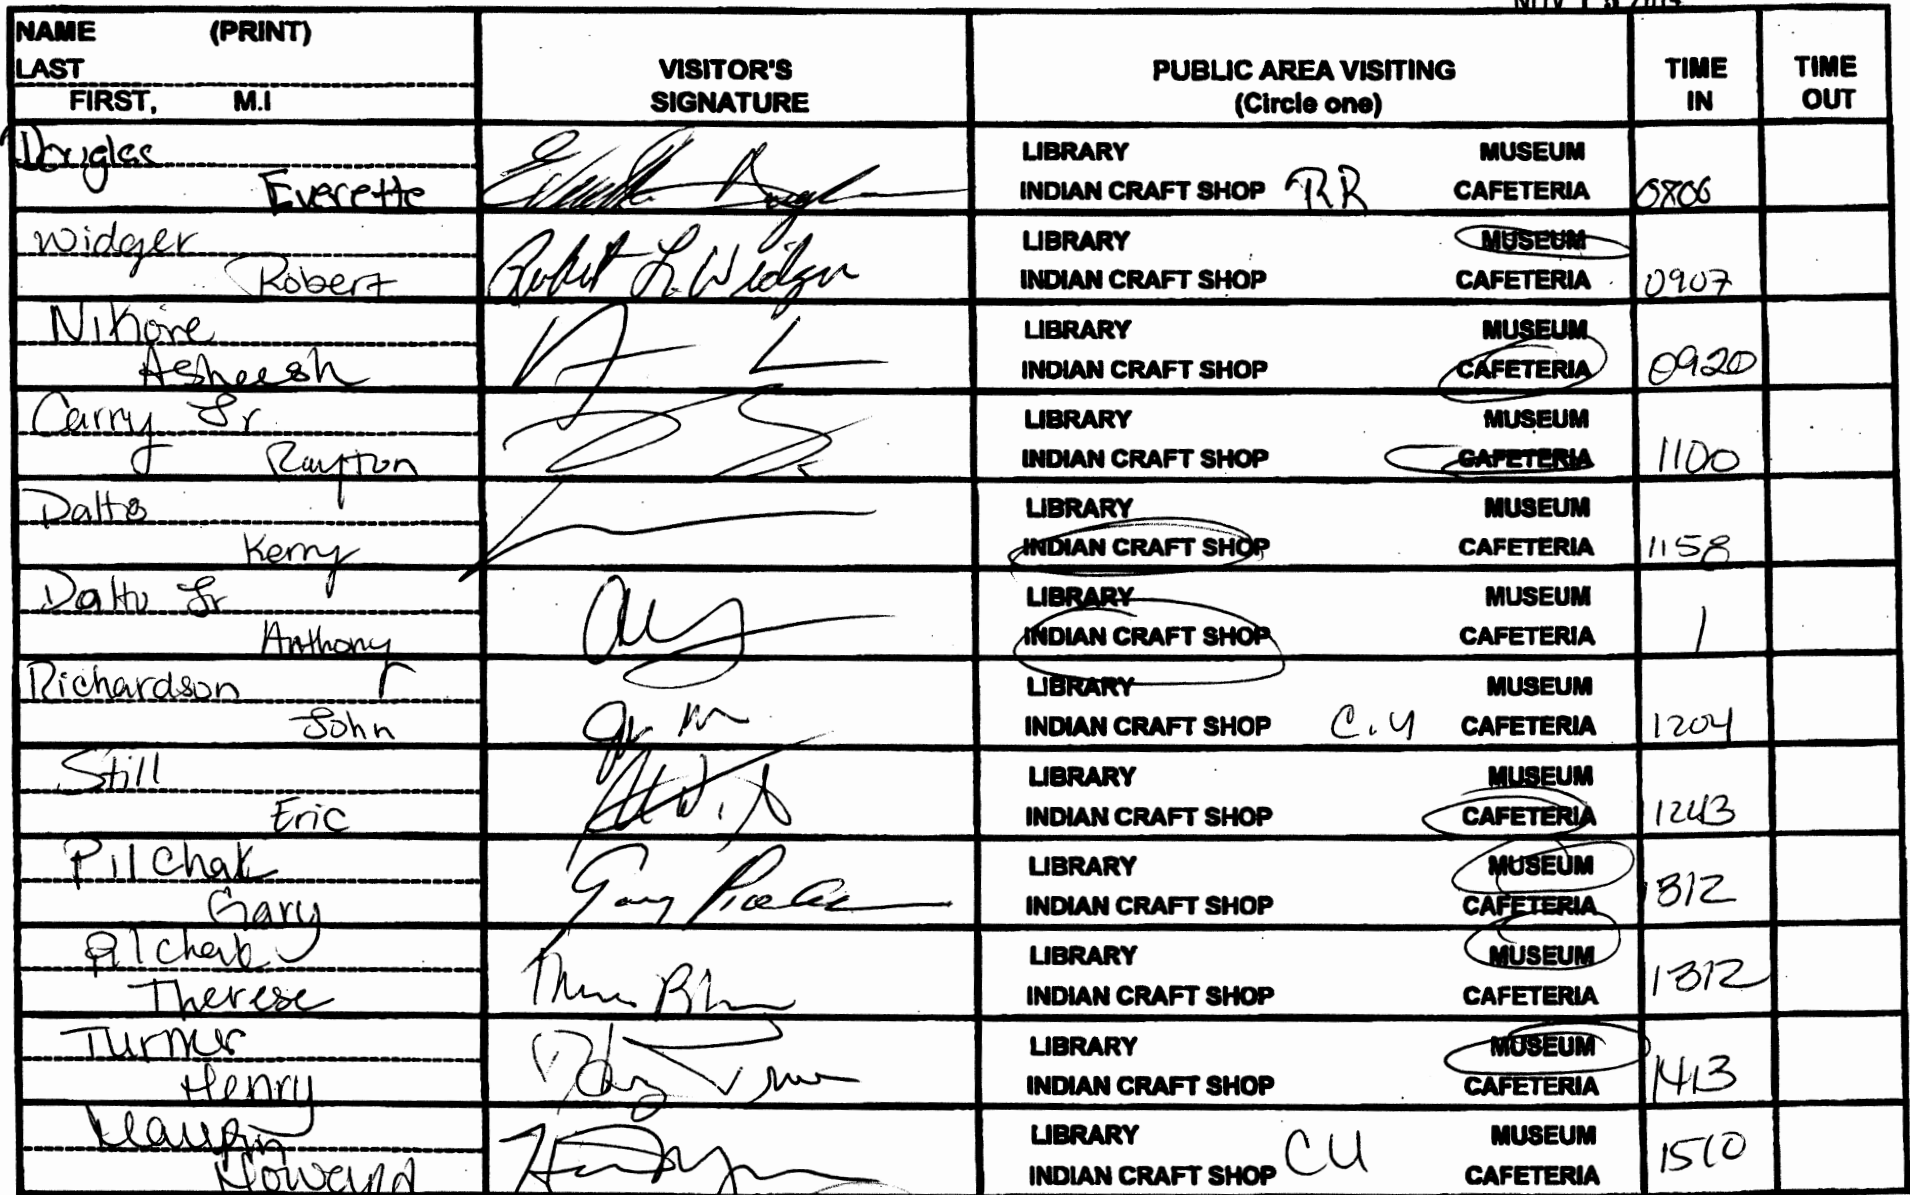 NAME (PRINT)
LAST
FIRST, M.I
VISITOR'S
SIGNATURE
PUBLIC AREA VISITING
(Circle one)
TIME
IN
TIME
OUT
Douglas
Everette
LIBRARY MUSEUM
INDIAN CRAFT SHOP RR CAFETERIA
0806
Widger
Robert
Robert L. Widger
LIBRARY MUSEUM
INDIAN CRAFT SHOP CAFETERIA
0907
Nikore
Asheesh
LIBRARY MUSEUM
INDIAN CRAFT SHOP CAFETERIA
0920
Carry Jr
Rayton
LIBRARY MUSEUM
INDIAN CRAFT SHOP CAFETERIA
1100
Dalto
Kerry
LIBRARY MUSEUM
INDIAN CRAFT SHOP CAFETERIA
1158
Dalto Jr
Anthony
LIBRARY MUSEUM
INDIAN CRAFT SHOP CAFETERIA
Richardson
John
LIBRARY MUSEUM
INDIAN CRAFT SHOP C.U CAFETERIA
1204
Still
Eric
LIBRARY MUSEUM
INDIAN CRAFT SHOP CAFETERIA
1243
Pilchak
Gary
LIBRARY MUSEUM
INDIAN CRAFT SHOP CAFETERIA
1312
Pilchak
Therese
LIBRARY MUSEUM
INDIAN CRAFT SHOP CAFETERIA
1312
Turner
Henry
LIBRARY MUSEUM
INDIAN CRAFT SHOP CAFETERIA
1413
Maupin
Howard
LIBRARY CU MUSEUM
INDIAN CRAFT SHOP CAFETERIA
1510